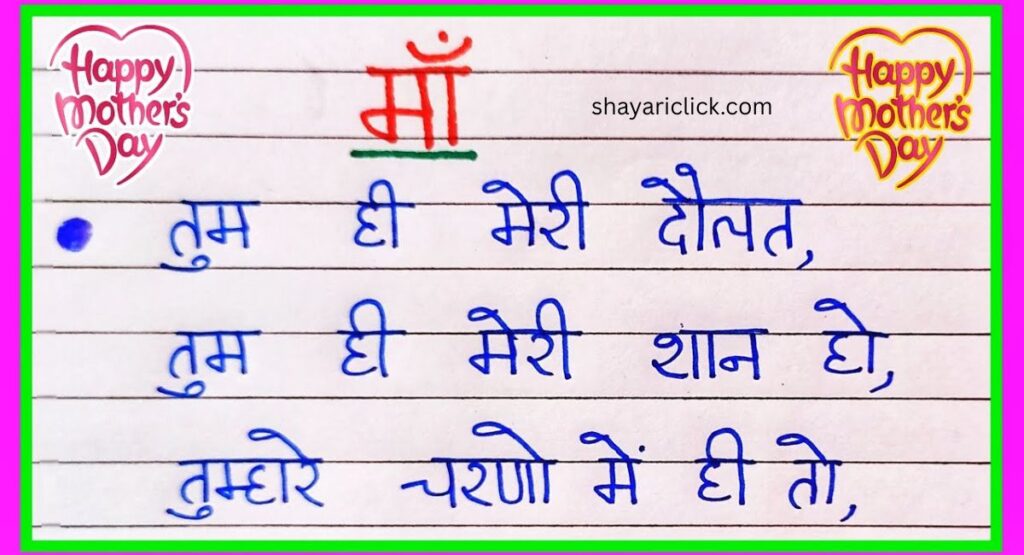 Happy Mother's Day
माँ
shayariclick.com
Happy Mother's Day
तुम ही मेरी दौलत,
तुम ही मेरी शान हो,
तुम्हारे चरणो में ही तो,